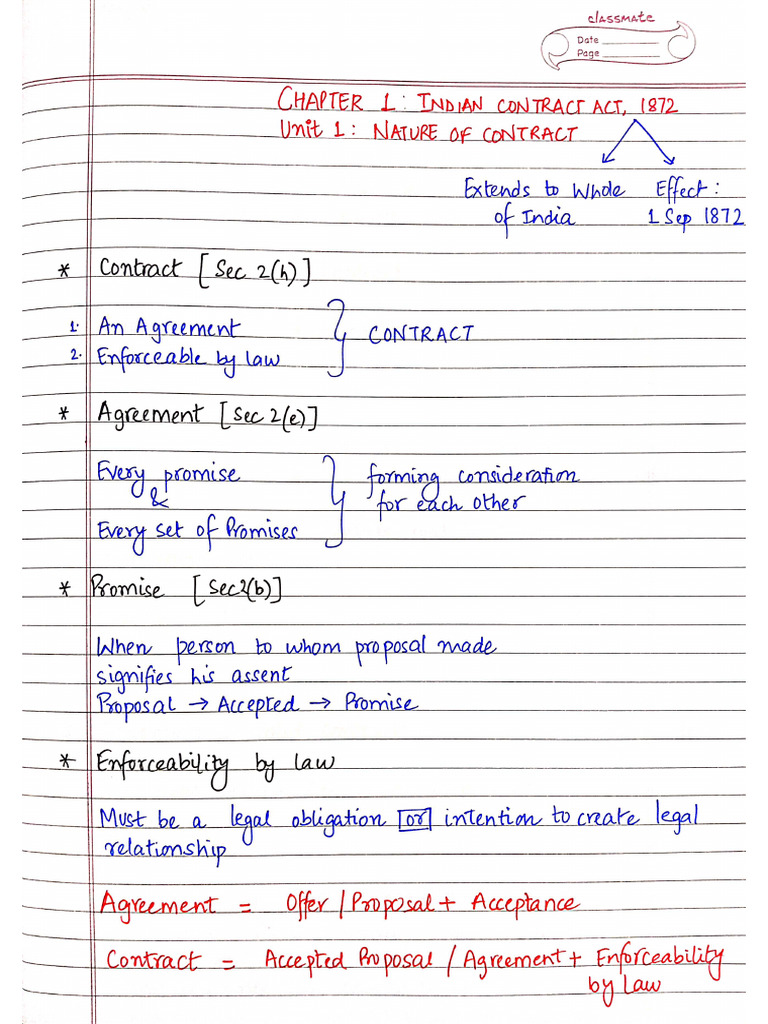 classmate
Date
Page
CHAPTER 1: INDIAN CONTRACT ACT, 1872
Unit 1: NATURE OF CONTRACT
Extends to Whole Effect:
of India 1 Sep 1872
* Contract [Sec 2(h)]
1. An Agreement
CONTRACT
2. Enforceable by law
* Agreement [Sec 2(e)]
Every promise forming consideration
& for each other
Every set of Promises
* Promise [Sec2(b)]
When person to whom proposal made
signifies his assent
Proposal → Accepted → Promise
* Enforceability by law
Must be a legal obligation or intention to create legal
relationship
Agreement = Offer / Proposal + Acceptance
Contract = Accepted Proposal / Agreement + Enforceability
by Law